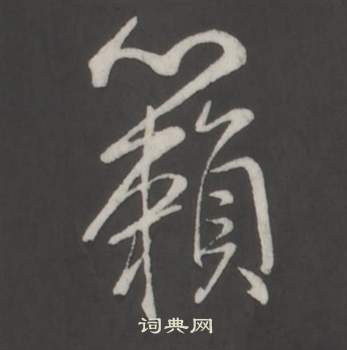 籟
词典网